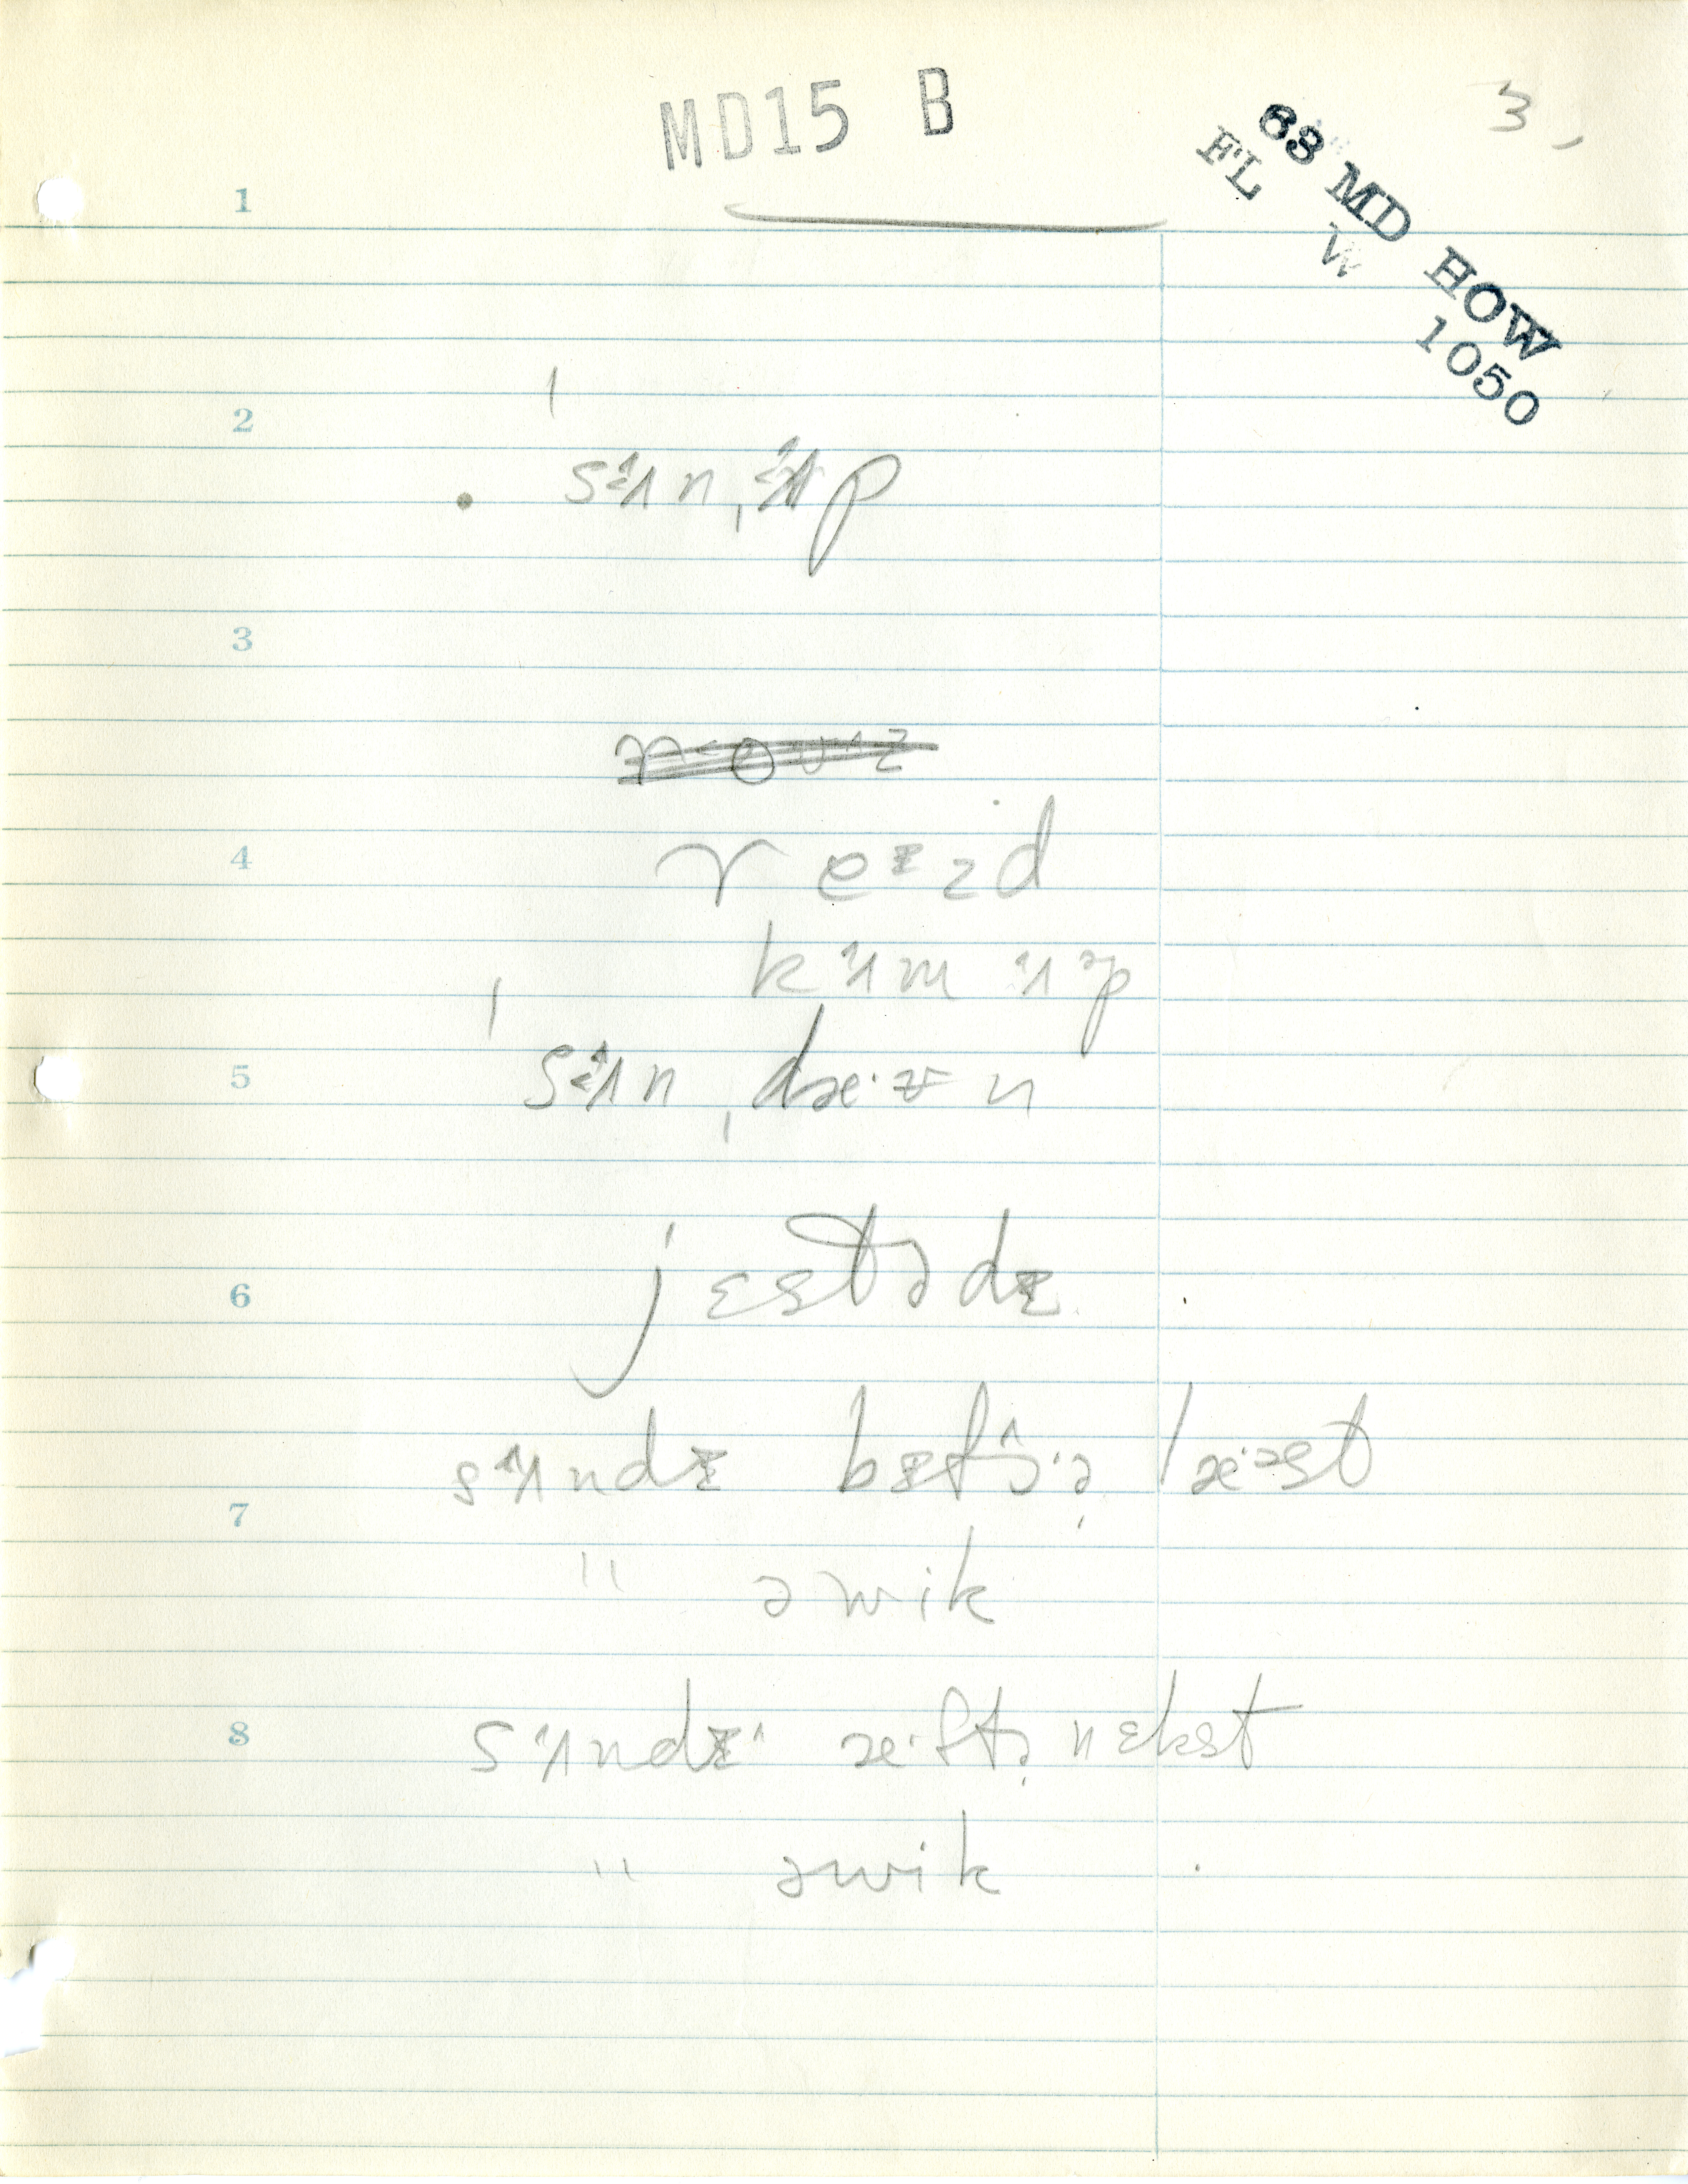 MD15 B
3,
63 MD HOW
FL W 1050
1
2
ˈsʌn,ʌp
3
4
reɪzd
kʌm ʌᵊp
5
ˈsʌn,dæ·ʊn
6
jɛstədɪ
sʌndɪ bɪfɔ·ə̣ læ·əst
7
" əwik
8
sʌndɪ æ·ftə̣ nɛkst
" əwik